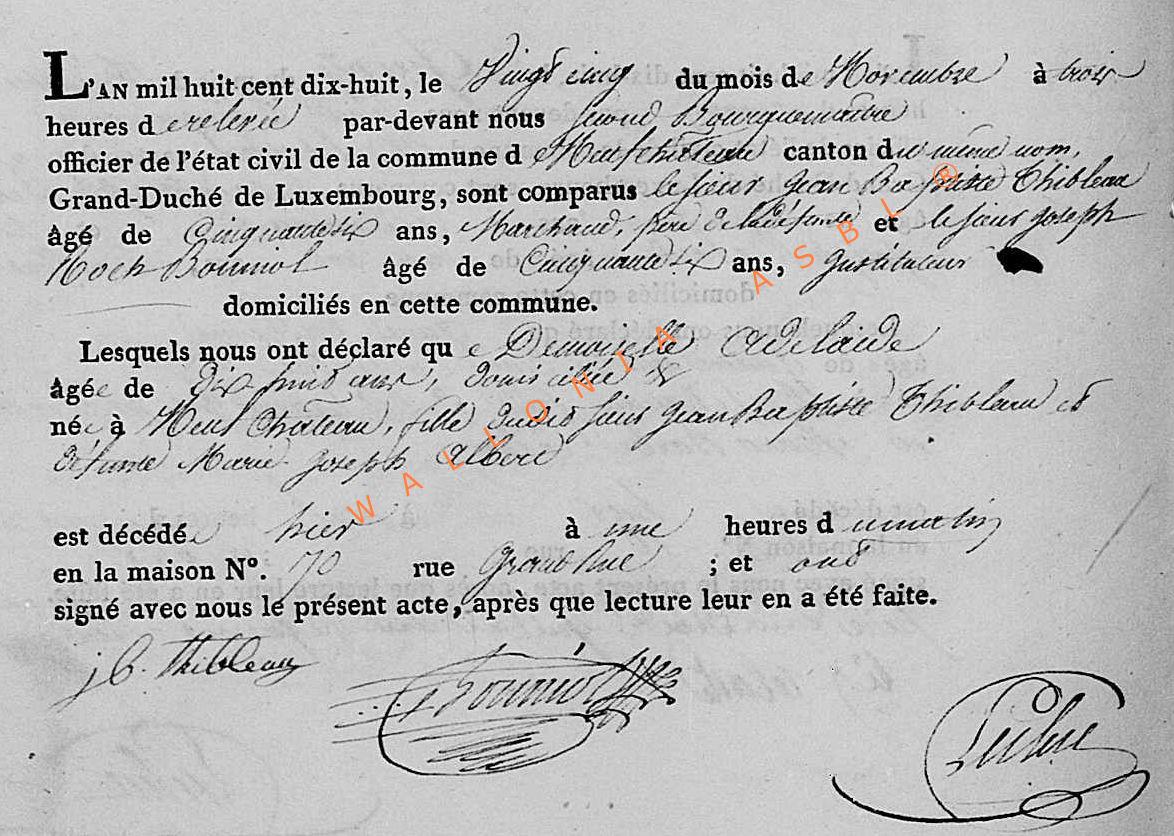 L'AN mil huit cent dix-huit, le Vingt cinq du mois de Novembre à trois
heures de relevée par-devant nous second Bourguemaitre
officier de l'état civil de la commune de Neufchâteau canton du même nom,
Grand-Duché de Luxembourg, sont comparus le sieur Jean Baptiste Thibleau
âgé de Cinquante six ans, Marchand, père de la défunte et le sieur Joseph
Roch âgé de Cinquante six ans, Instituteur
domiciliés en cette commune.
Lesquels nous ont déclaré que Demoiselle Adelaide
âgée de dix huit ans, domiciliée &
née à Neufchâteau, fille dudit sieur Jean Baptiste Thibleau et
défunte Marie Joseph Albert
est décédée hier à une heures du matin
en la maison N°. 70 rue Grand Rue ; et ont
signé avec nous le présent acte, après que lecture leur en a été faite.
j B. Thibleau
WALLONIA ASBL ®